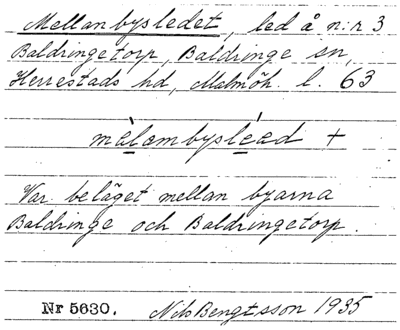 Mellanbysledet, led å n:r 3
Baldringetorp, Baldringe sn,
Herrestads hd, Malmöh. l. 63
mèlambysléad +
Var beläget mellan byarna
Baldringe och Baldringetorp.
Nr 5630. Nils Bengtsson 1935